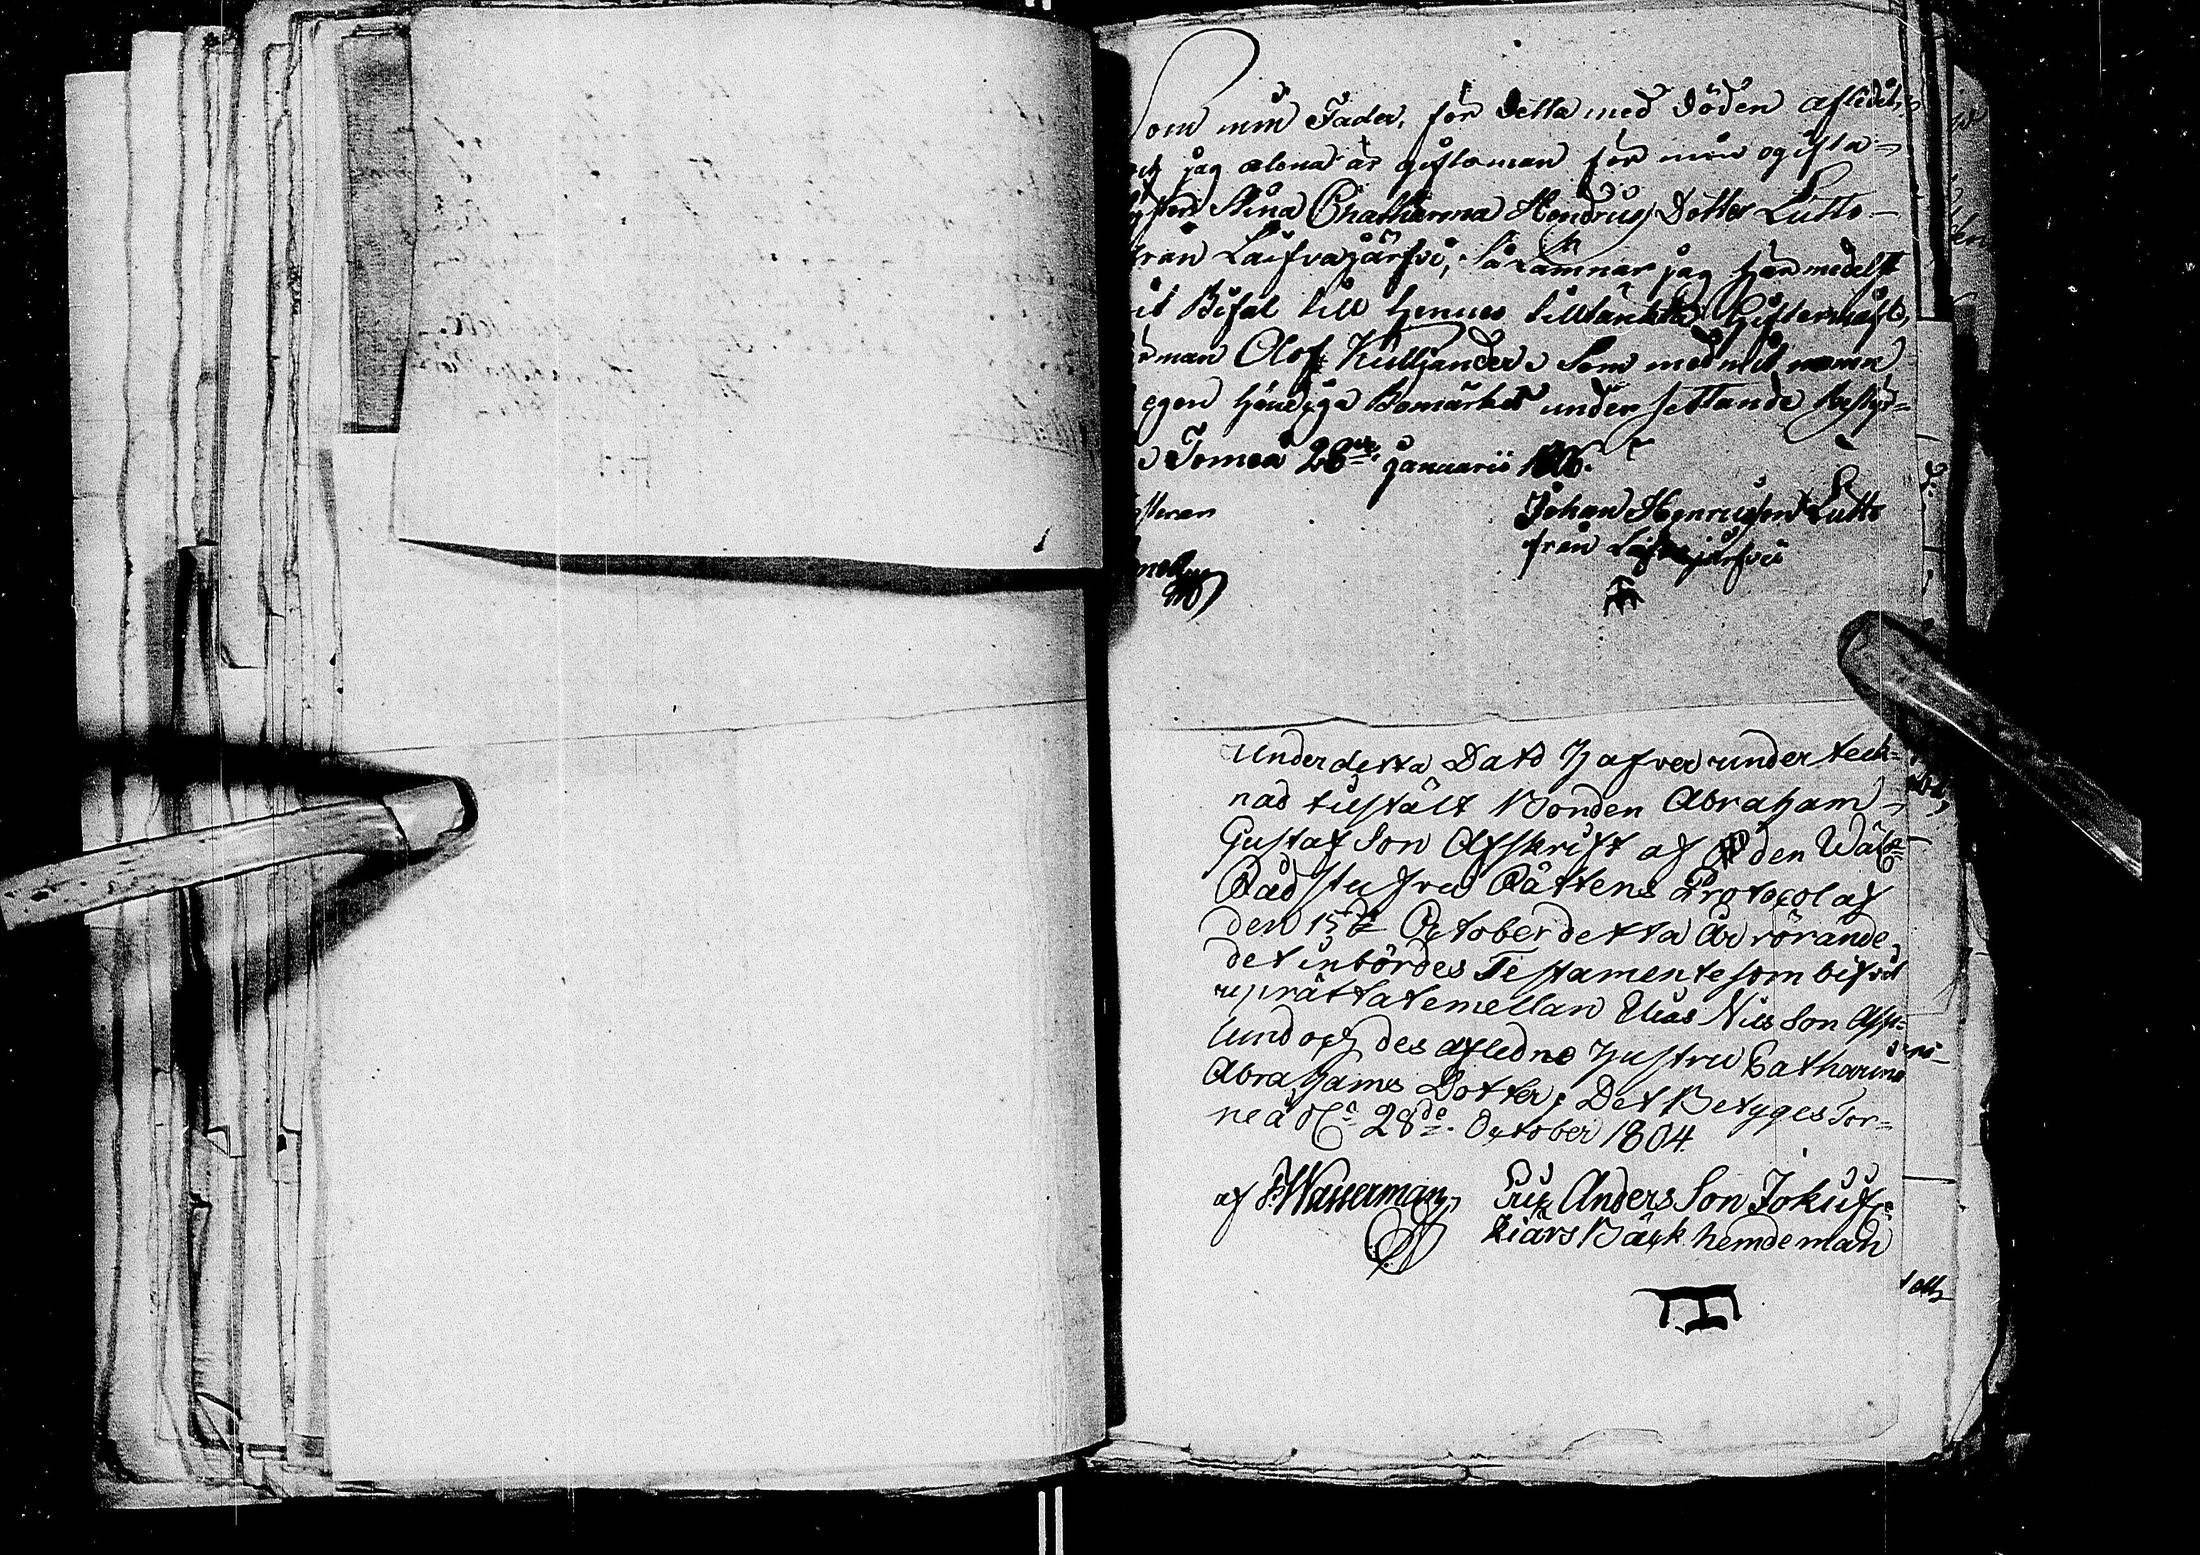 Som min Fader, för detta med Döden afledit,
och jag alena är giftoman för min ogifta
Syster Stina Chatharina Hendrichs Dotter Lutto
från Laifvajärfvi, Så Lämnar jag härmedelst
mit Bifal till hennes tilltänkta Giftermåhl,
man Olof Kulljander, Som med mit namn
egen händiga Bomärket undersettande bestyr=
Torneå 28 Januarii
Johan Henrichson Lutto
från Laifvajärfvi
Under detta Dato hafver underteck=
nad tilstält Bonden Abraham
Gustaf Son Afskrift af den Wäl
Rådstufvu Rättens Protocol af
den 15de October detta År rörande
det inbördes Testamente som bifvit
uprättat emellan Elias Nils Son Asp=
lund och des afledne hustru Catharina
Abrahams Dotter, Det Betyges Tor=
neå 28de October 1804.
af Wasserman Erik Anders Son Jokuf
Kiärs Bäck hemdeman